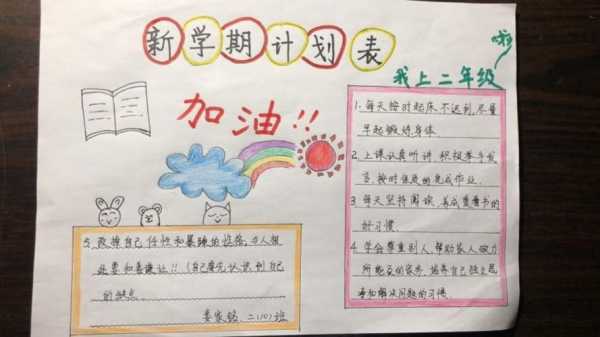 新学期计划表
我上二年级
啦
加油!!
1. 每天按时起床不迟到,尽量
早起锻炼身体.
2. 上课认真听讲,积极举手发
言,按时保质的完成作业.
3. 每天坚持阅读,养成爱看书的
好习惯.
4. 学会尊重别人,帮助家人做力
所能及的家务,培养自己独立思
考和解决问题的习惯.
5. 改掉自己任性和暴躁的性格,与人相
处要和善谦让!!(自己需先认识到自己
的缺点.
娄家铭. 二(10)班